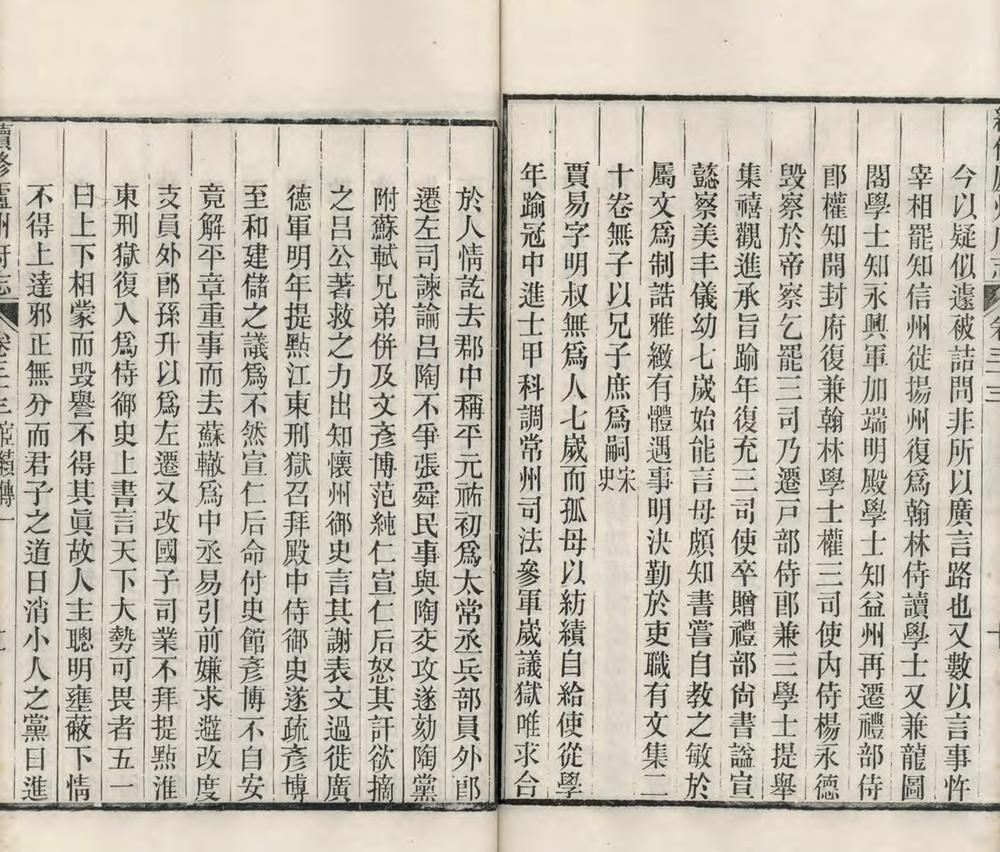 今以疑似遽被詰問非所以廣言路也又數以言事忤
宰相罷知信州徙揚州復爲翰林侍讀學士又兼龍圖
閣學士知永興軍加端明殿學士知益州再遷禮部侍
郎權知開封府復兼翰林學士權三司使內侍楊永德
毀察於帝察乞罷三司乃遷戸部侍郎兼三學士提舉
集禧觀進承旨踰年復充三司使卒贈禮部尙書諡宣
懿察美丰儀幼七嵗始能言母頗知書嘗自教之敏於
屬文爲制誥雅緻有體遇事明決勤於吏職有文集二
十卷無子以兄子庶爲嗣宋史
賈易字明叔無爲人七嵗而孤母以紡績自給使從學
年踰冠中進士甲科調常州司法參軍嵗議獄唯求合
續修廬州府志 卷三十三 宦績傳一
於人情訖去郡中稱平元祐初爲太常丞兵部員外郎
遷左司諫論呂陶不爭張舜民事與陶交攻遂劾陶黨
附蘇軾兄弟併及文彥博范純仁宣仁后怒其訐欲摘
之呂公著救之力出知懷州御史言其謝表文過徙廣
德軍明年提㸃江東刑獄召拜殿中侍御史遂疏彥博
至和建儲之議爲不然宣仁后命付史館彥博不自安
竟解平章重事而去蘇轍爲中丞易引前嫌求避改度
支員外郎孫升以爲左遷又改國子司業不拜提㸃淮
東刑獄復入爲侍御史上書言天下大勢可畏者五一
曰上下相蒙而毀譽不得其眞故人主聰明壅蔽下情
不得上達邪正無分而君子之道日消小人之黨日進